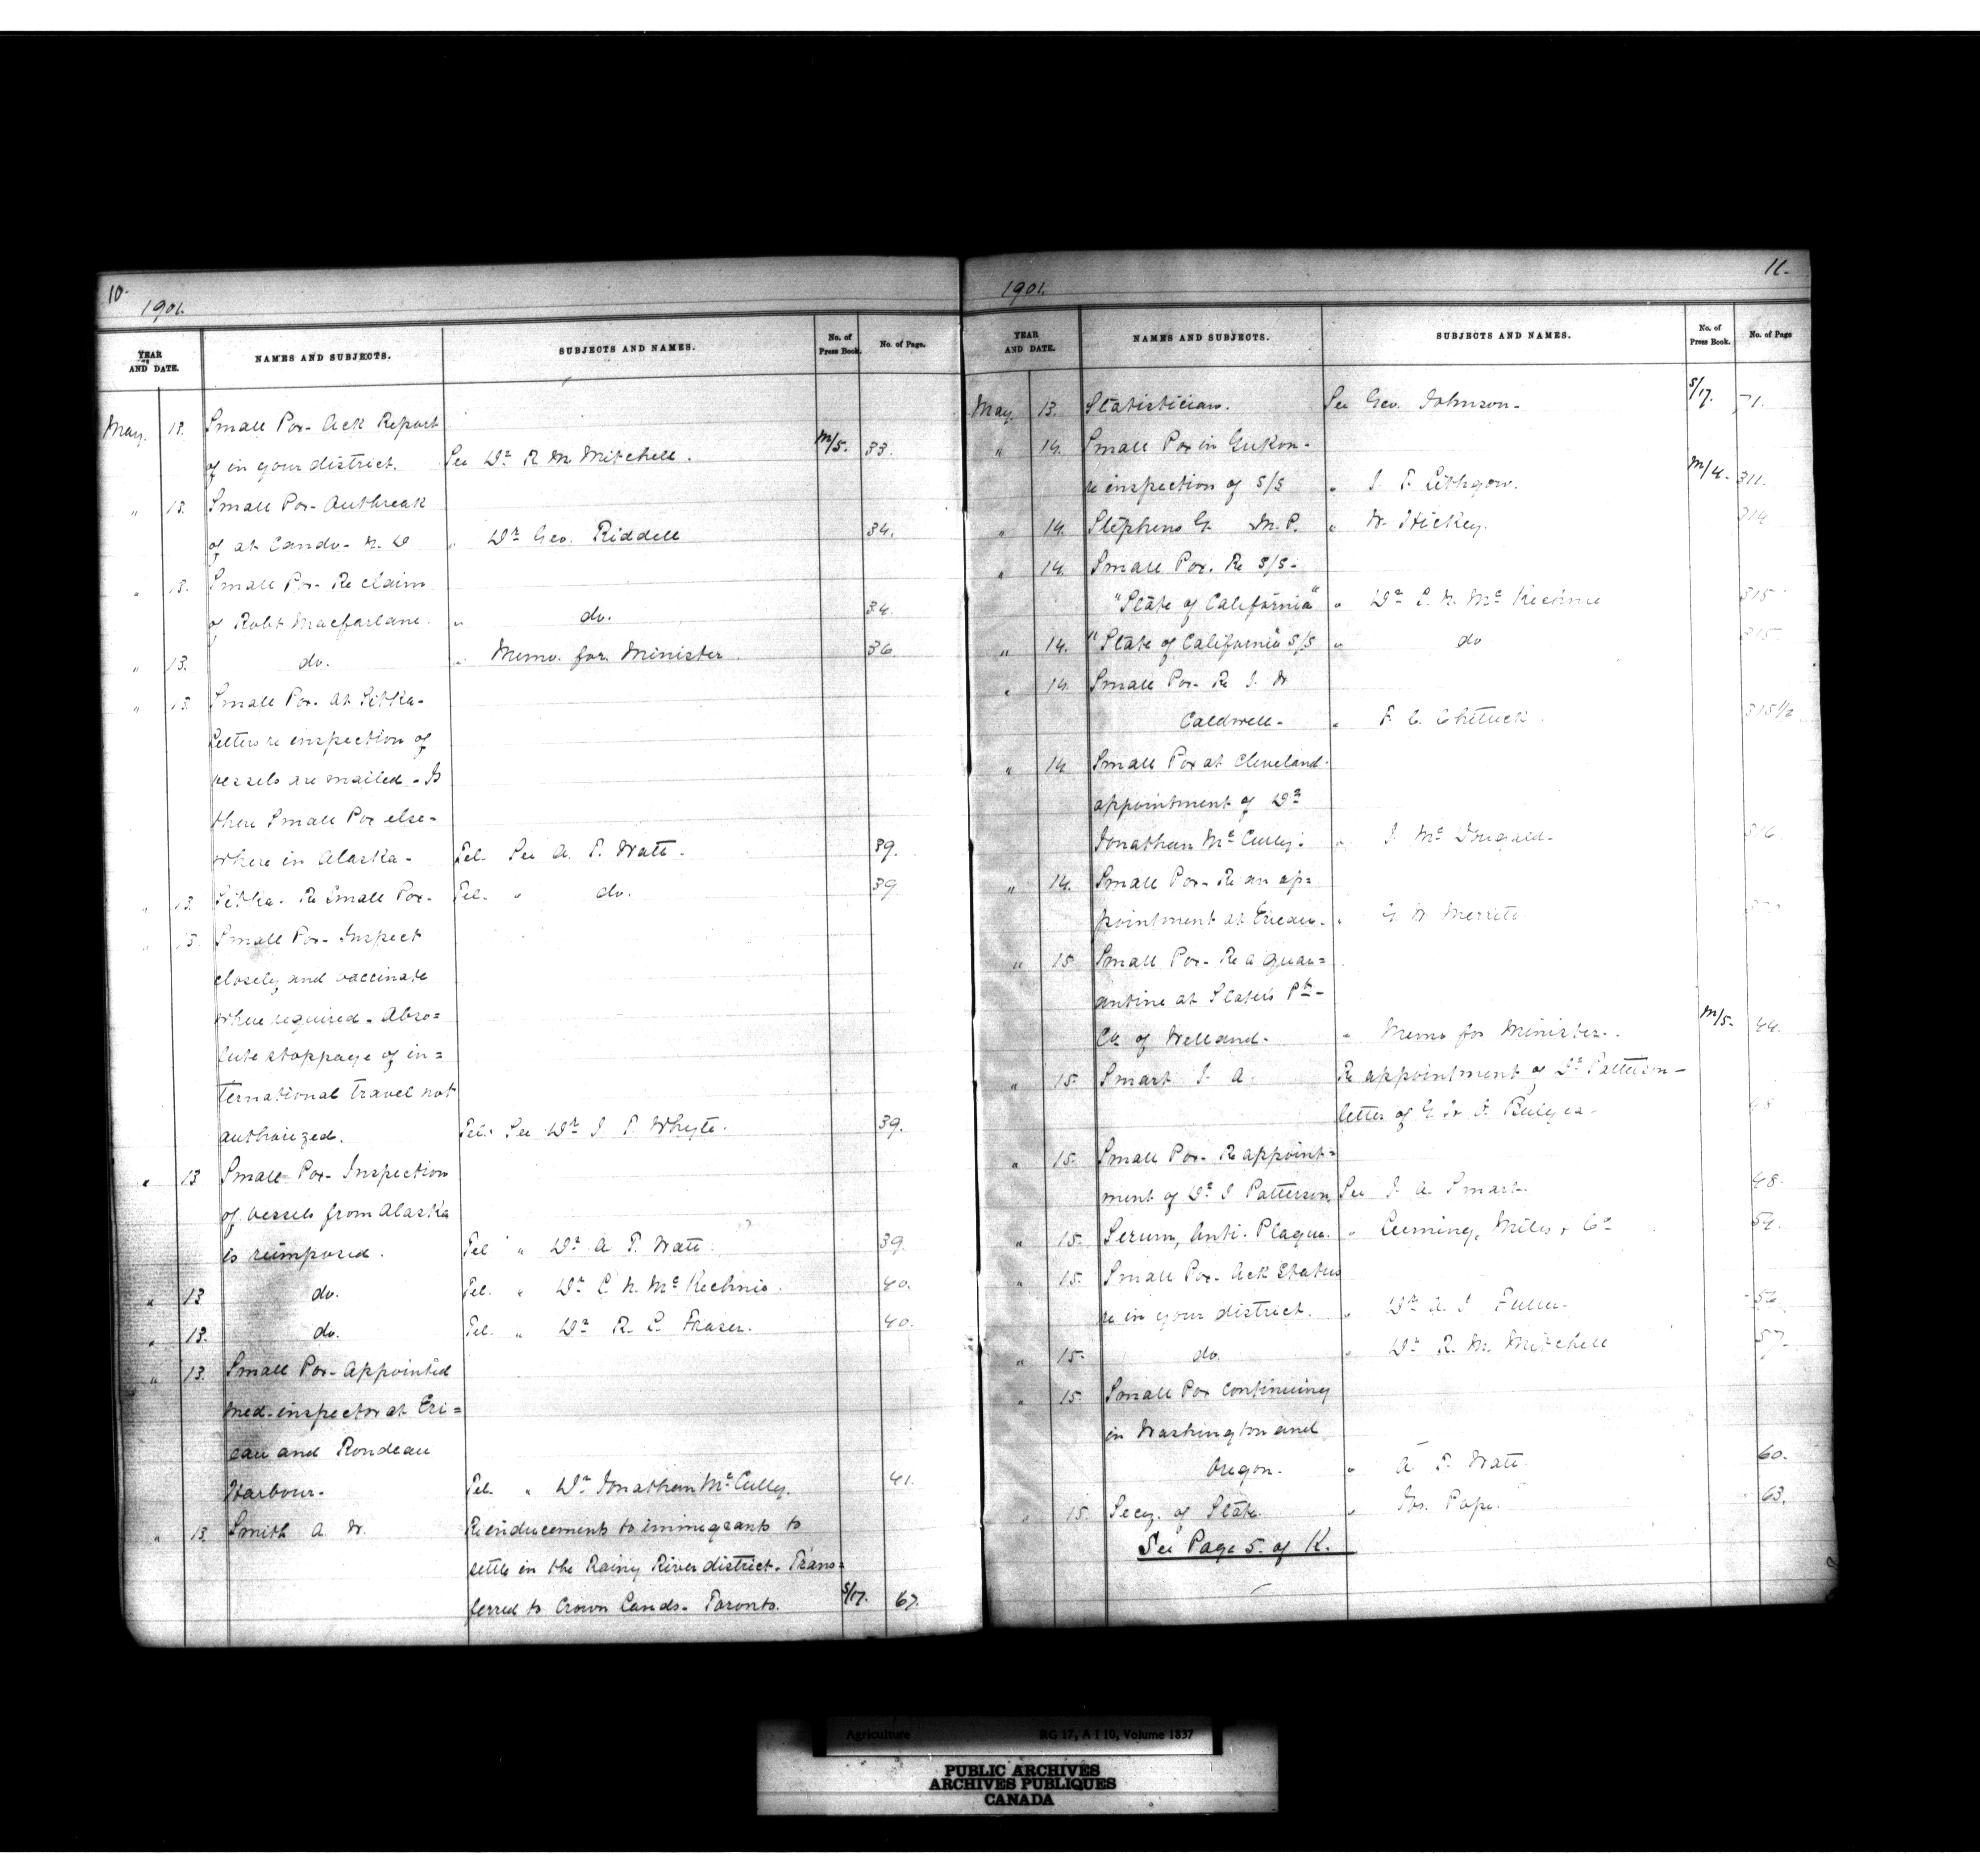 10.
1901.
YEAR AND DATE. NAMES AND SUBJECTS. SUBJECTS AND NAMES. No. of Press Book. No. of Page.
May. 13. Small Pox - Ack Report
of in your district. See Dr R M Mitchell. M/5. 33.
" 13. Small Pox - Outbreak
of at Cando - N. D " Dr Geo. Riddell 34.
" 13. Small Pox - Re claim
of Robt Macfarlane. " do. 34.
" 13. do. " Memo. for Minister. 36.
" 13. Small Pox - at Sitka -
Letters re inspection of
vessels are mailed - Is
there Small Pox else=
where in Alaska - Tel. See A. T. Watt. 39.
" 13. Sitka - Re Small Pox - Tel. " do. 39
" 13. Small Pox - Inspect
closely and vaccinate
where required - Abso=
lute stoppage of in=
ternational travel not
authorized. Tel. See Dr J. T. Whyte. 39.
" 13 Small Pox - Inspection
of vessels from Alaska
is reimposed. Tel " Dr A. T. Watt. 39.
" 13 do. Tel. " Dr L. N. McKechnie. 40.
" 13. do. Tel. " Dr R. L. Fraser. 40.
" 13. Small Pox - Appointed
Med. inspector at Eri=
eau and Rondeau
Harbour. Tel. " Dr Jonathan McCully. 41.
" 13. Smith A. W. Re inducements to immigrants to
settle in the Rainy River district. Trans=
ferred to Crown Lands - Toronto. S/17. 67.
11.
1901.
YEAR AND DATE. NAMES AND SUBJECTS. SUBJECTS AND NAMES. No. of Press Book. No. of Page
May. 13. Statistician. See Geo. Johnson - S/17. 71.
" 14. Small Pox in Yukon -
re inspection of S/S " J. T. Lithgow. M/4. 311.
" 14. Stephens G. M.P. " W. Hickey. 314
" 14. Small Pox. Re S/S -
"State of California" " Dr L. N. McKechnie 315
" 14. "State of California" S/S " do 315
" 14. Small Pox - Re J. W
Caldwell - " F. C. 315½
" 14 Small Pox at Cleveland -
appointment of Dr
Jonathan McCully. " J. McDougald - 316
" 14. Small Pox - Re an ap=
pointment at Erieau. " G. W. Merritt
" 15 Small Pox - Re a quar=
antine at Slater's Pt -
Co. of Welland. " Memo for Minister. M/5. 44.
" 15. Smart J. A. Re appointment of Dr Patterson -
letter of G. H. V. Bulyea - 48
" 15. Small Pox - Re appoint=
ment of Dr J Patterson See J. A. Smart. 48.
" 15. Serum, Anti-Plague. " Leeming, Miles & Co 52.
" 15. Small Pox - Ack Status
re in your district. " Dr A. J. Fuller - 56
" 15. do. " Dr R. M. Mitchell 57.
" 15. Small Pox continuing
in Washington and
Oregon. " A. T. Watt. 60.
" 15. Secy. of State. " Jos. Pope. 63.
See Page 5. of K.
Agriculture RG 17, A I 10, Volume 1837
PUBLIC ARCHIVES
ARCHIVES PUBLIQUES
CANADA